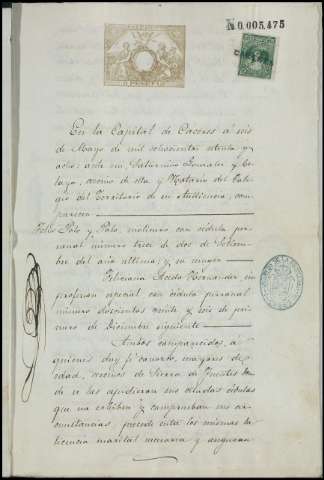 N 0.005.475
En la Capital de Caceres á seis
de Mayo de mil ochocientos setenta y
ocho: ante mi, Saturnino Gonzalez y Ce-
layo, vecino de ella y Notario del Cole-
gio del Territorio de su Audiencia, com-
parecen
Felix Polo y Polo, molinero con cédula per-
sonal número trece de dos de Setiem-
bre del año ultimo, y su
Feliciana Acedo Hernandez, sin
profesion especial con cédula personal
número doscientos veinte y seis de pri-
mero de Diciembre siguiente
Ambos comparecidos, á
quienes doy fé conozco, mayores de
edad, vecinos de Sierra de Fuentes don-
de se les espidieron sus citadas cédulas
que me exhiben y comprueban sus cir-
cunstancias, precede entre los mismos la
licencia marital necesaria y aseguran